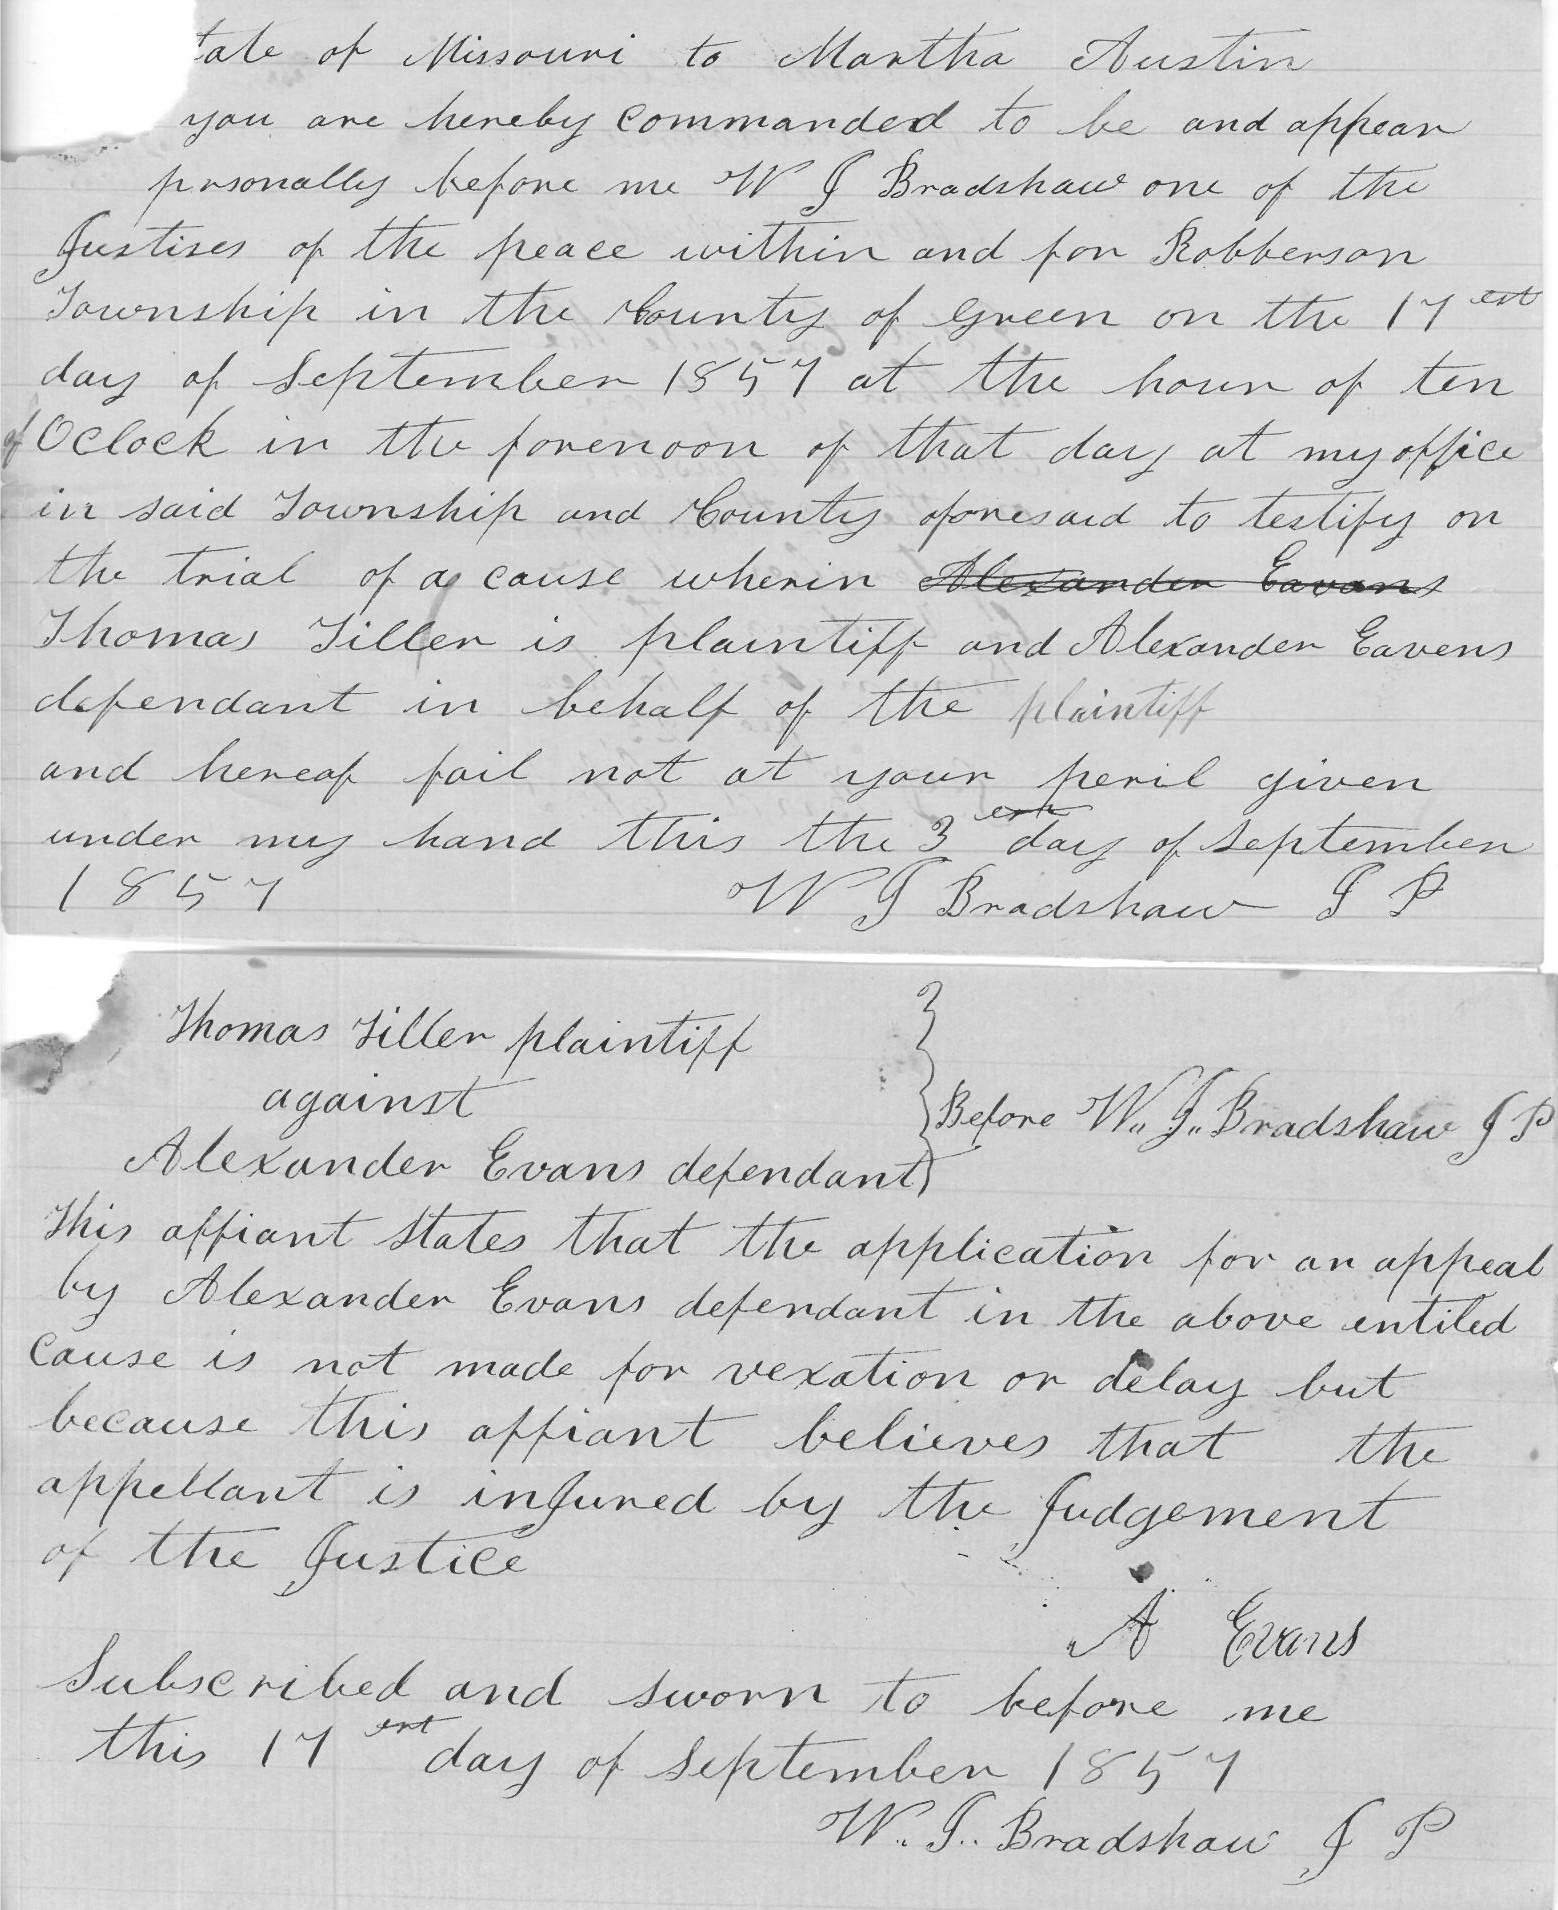 tate of Missouri to Martha Austin
you are hereby commanded to be and appear
prsonally before me W J Bradshaw one of the
Justises of the peace within and for Robberson
Township in the County of Green on the 17 est
day of September 1857 at the hour of ten
of Oclock in the forenoon of that day at my office
in said Township and County aforesaid to testify on
the trial of a cause wherin Alexander Eavans
Thomas Tiller is plaintiff and Alexander Eavens
defendant in behalf of the plaintiff
and hereof fail not at your peril given
under my hand this the 3 est day of September
1857 W J Bradshaw J P
Thomas Tiller plaintiff
against
Before W. J. Bradshaw J P
Alexander Evans defendant
This affiant States that the application for an appeal
by Alexander Evans defendant in the above entiled
cause is not made for vexation or delay but
because this affiant believes that the
appellant is inJured by the Judgement
of the Justice
A Evans
Subscribed and sworn to before me
this 17 est day of September 1857
W. J. Bradshaw J P